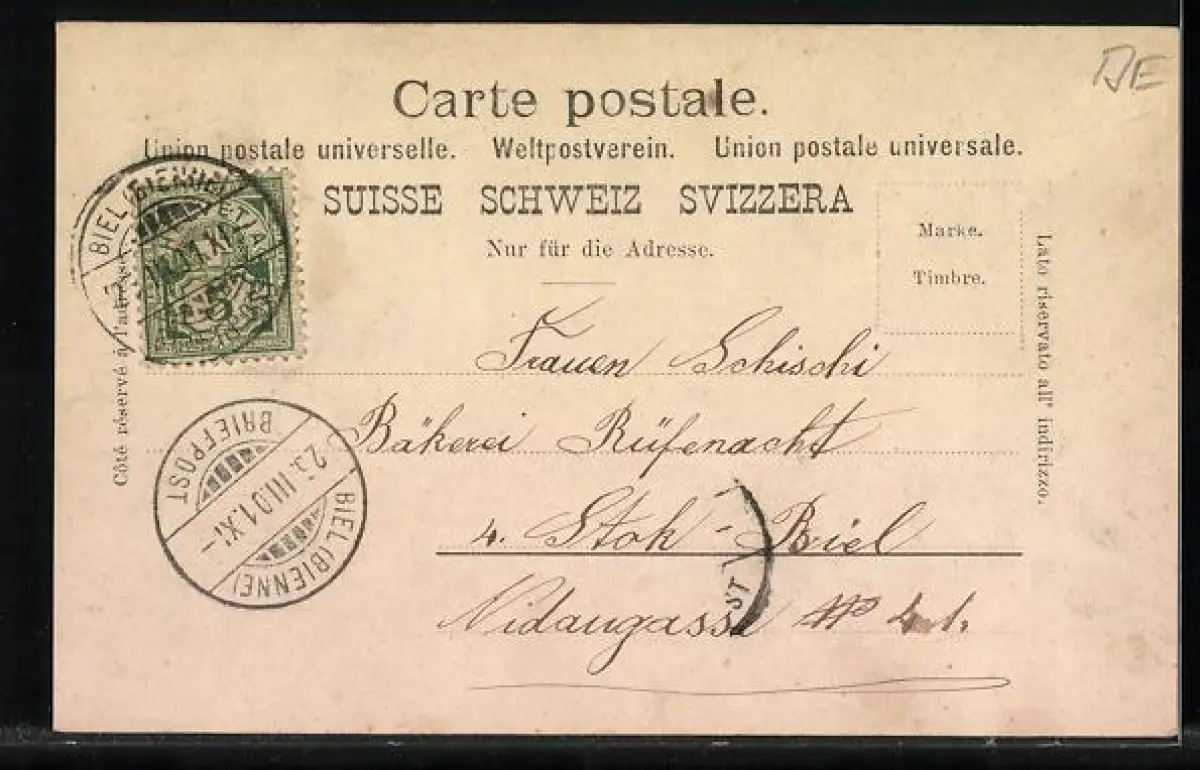 Carte postale.
Union postale universelle. Weltpostverein. Union postale universale.
SUISSE SCHWEIZ SVIZZERA
Nur für die Adresse.
Marke.
Timbre.
Côté réservé à l'adresse
Lato riservato all' indirizzo.
BIEL (BIENNE)
01.XI
5
BRIEFPOST
III.01.XI.–
BIEL (BIENNE)
Frauen Schischi
Bäkerei Rüfenacht
4. Stok - Biel
Nidaugasse № 41.
ST